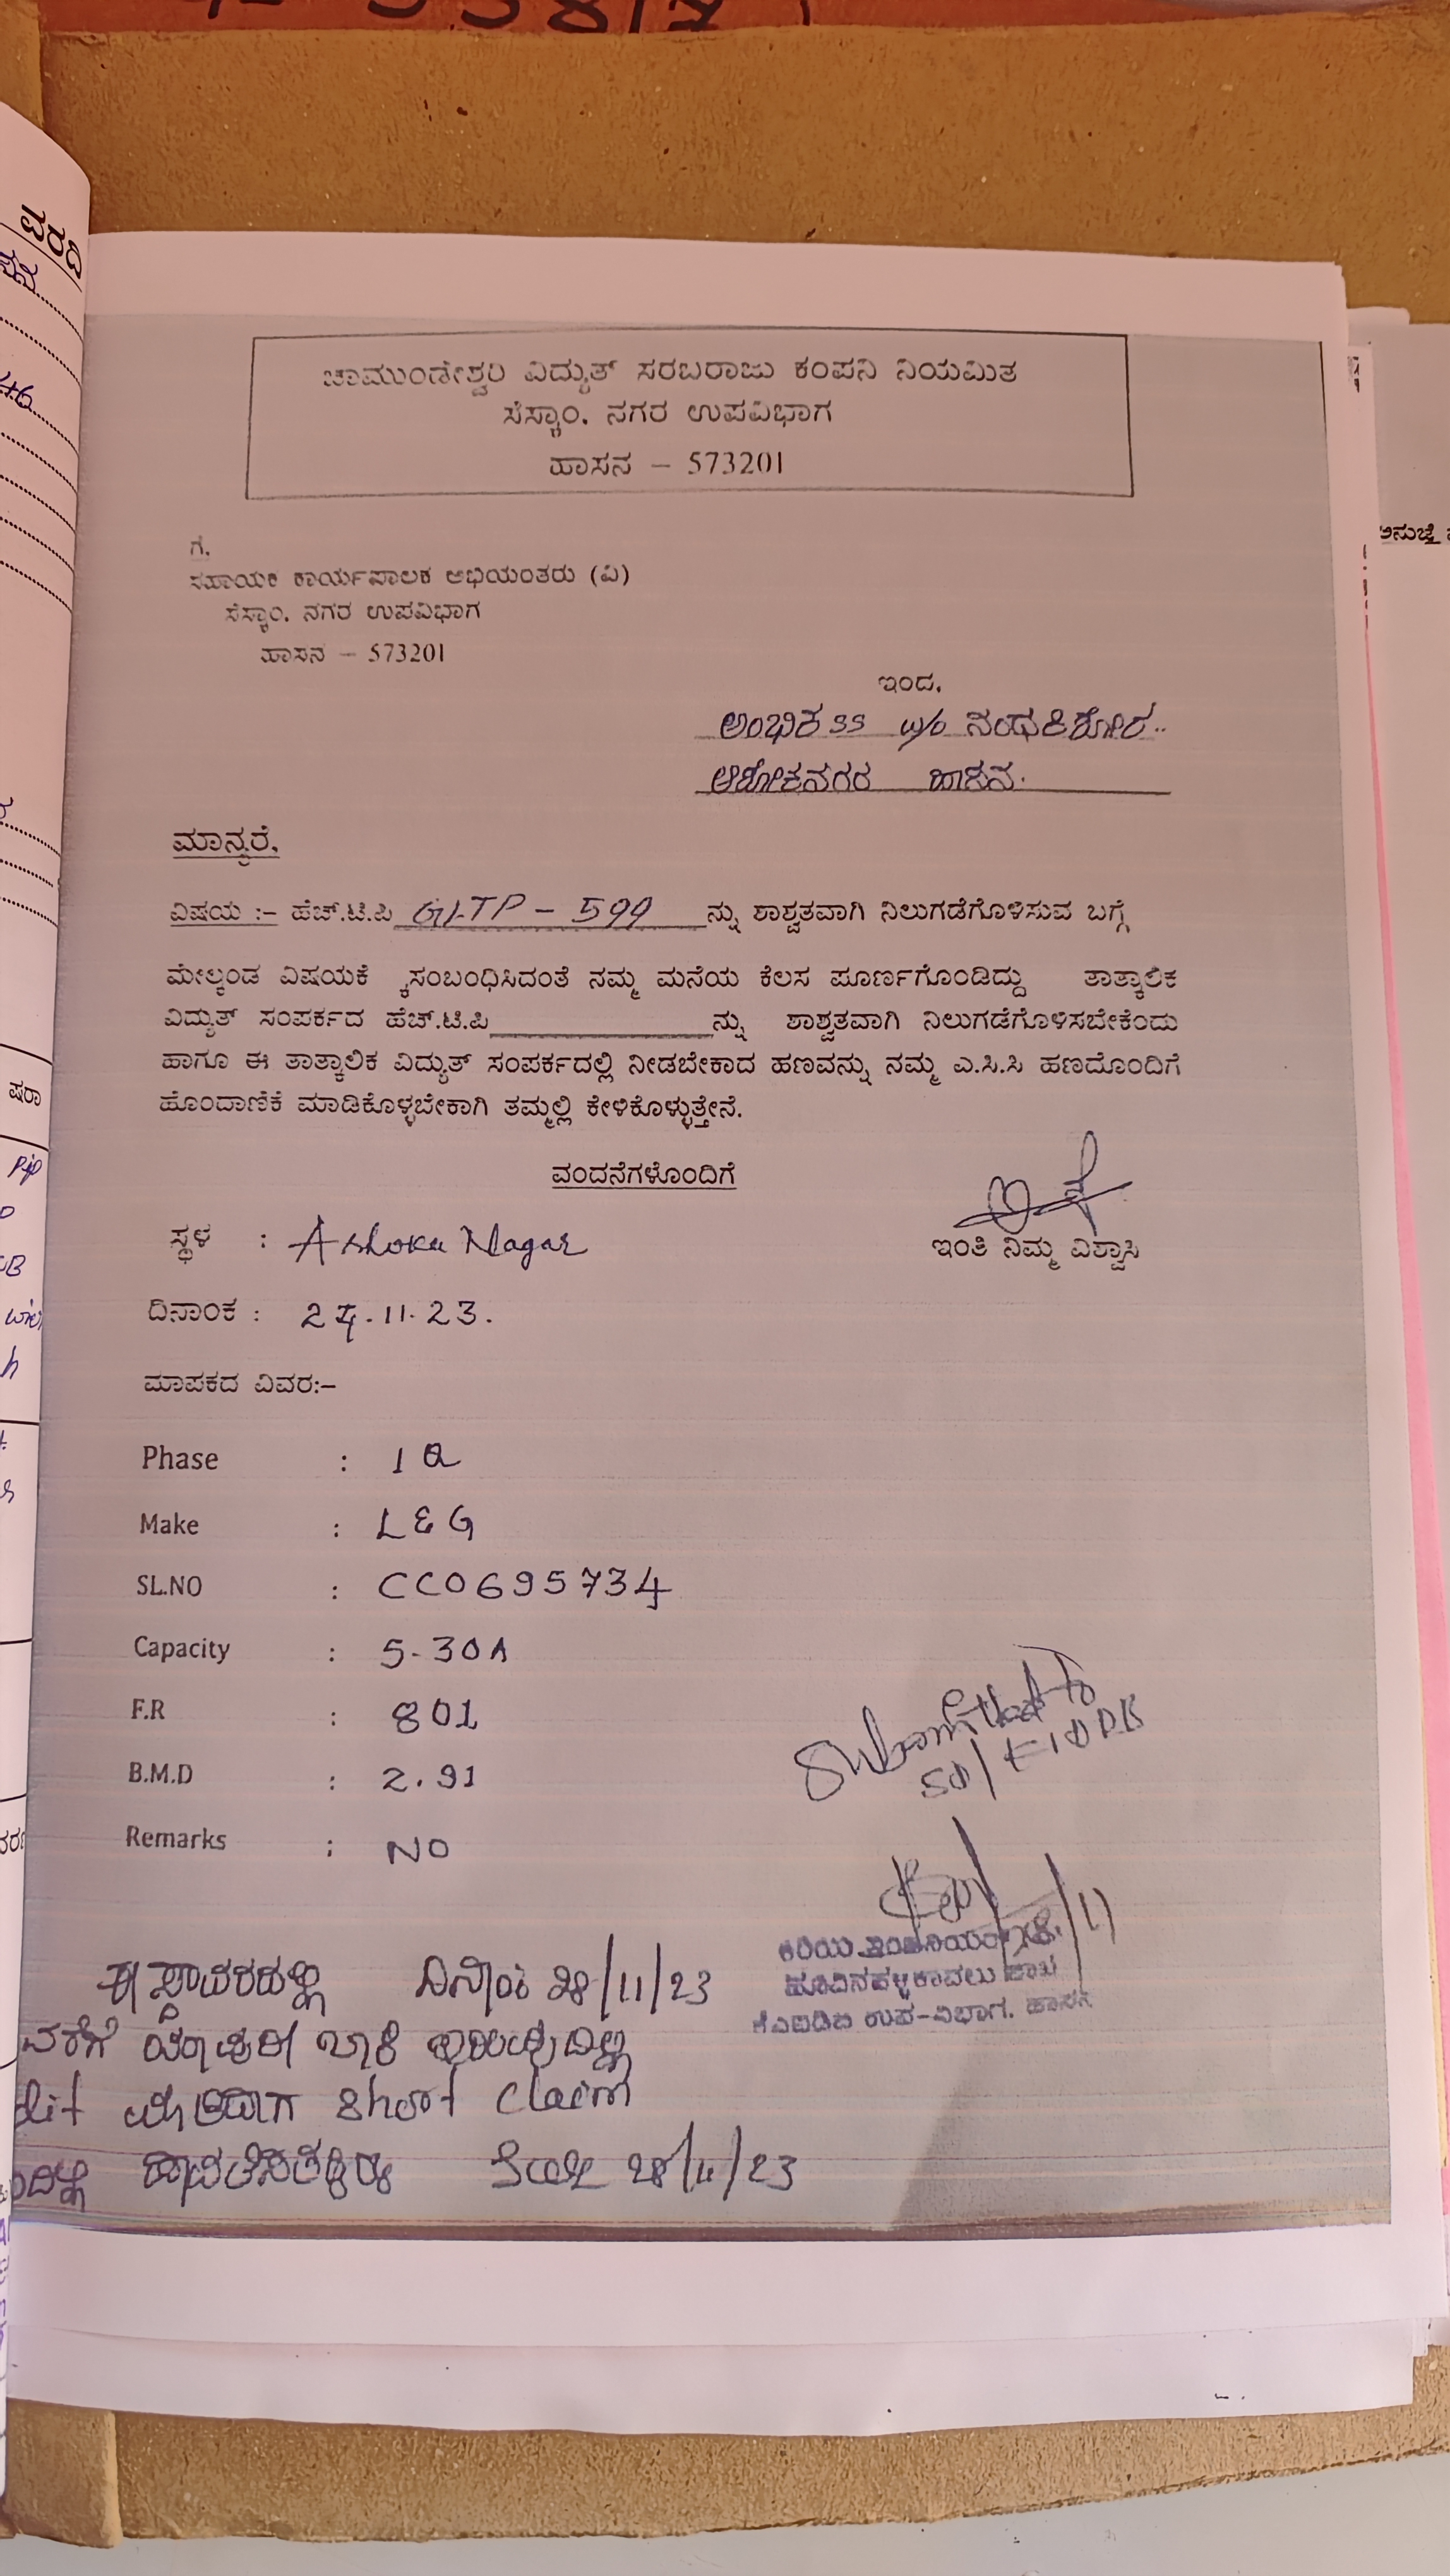 ಚಾಮುಂಡೇಶ್ವರಿ ವಿದ್ಯುತ್ ಸರಬರಾಜು ಕಂಪನಿ ನಿಯಮಿತ
ಸೆಸ್ಕಾಂ. ನಗರ ಉಪವಿಭಾಗ
ಹಾಸನ – 573201
ಗೆ.
ಸಹಾಯಕ ಕಾರ್ಯಪಾಲಕ ಅಭಿಯಂತರು (ವಿ)
ಸೆಸ್ಕಾಂ. ನಗರ ಉಪವಿಭಾಗ
ಹಾಸನ – 573201
ಇಂದ.
ಅಂಭಿಕ SS w/o ನಂಧಕಿಶೋರ
ಆಶೋಕನಗರ ಹಾಸನ.
ಮಾನ್ಯರೆ.
ವಿಷಯ :– ಹೆಚ್.ಟಿ.ಪಿ GLTP – 599 ನ್ನು ಶಾಶ್ವತವಾಗಿ ನಿಲುಗಡೆಗೊಳಿಸುವ ಬಗ್ಗೆ
ಮೇಲ್ಕಂಡ ವಿಷಯಕೆ ್ಕಸಂಬಂಧಿಸಿದಂತೆ ನಮ್ಮ ಮನೆಯ ಕೆಲಸ ಪೂರ್ಣಗೊಂಡಿದ್ದು ತಾತ್ಕಾಲಿಕ
ವಿದ್ಯುತ್ ಸಂಪರ್ಕದ ಹೆಚ್.ಟಿ.ಪಿ ನ್ನು ಶಾಶ್ವತವಾಗಿ ನಿಲುಗಡೆಗೊಳಿಸಬೇಕೆಂದು
ಹಾಗೂ ಈ ತಾತ್ಕಾಲಿಕ ವಿದ್ಯುತ್ ಸಂಪರ್ಕದಲ್ಲಿ ನೀಡಬೇಕಾದ ಹಣವನ್ನು ನಮ್ಮ ಎ.ಸಿ.ಸಿ ಹಣದೊಂದಿಗೆ
ಹೊಂದಾಣಿಕೆ ಮಾಡಿಕೊಳ್ಳಬೇಕಾಗಿ ತಮ್ಮಲ್ಲಿ ಕೇಳಿಕೊಳ್ಳುತ್ತೇನೆ.
ವಂದನೆಗಳೊಂದಿಗೆ
ಸ್ಥಳ : Ashoka Nagar
ಇಂತಿ ನಿಮ್ಮ ವಿಶ್ವಾಸಿ
ದಿನಾಂಕ : 24.11.23.
ಮಾಪಕದ ವಿವರ:–
Phase : 1
Make : L&G
SL.NO : CC0695734
Capacity : 5-30A
F.R : 801
B.M.D : 2.91
Remarks : NO
Submitted to
ಹೂವಿನಹಳ್ಳಿಕಾವಲು ಶಾಖೆ
ಕೆಎಐಡಿಬಿ ಉಪ-ವಿಭಾಗ. ಹಾಸನ
ಈ ಸ್ಥಾವರದಲ್ಲಿ 28/11/23
ವರೆಗೆ ಯಾವುದೇ ಬಾಕಿ ಇರುವುದಿಲ್ಲ
short claim
28/11/23